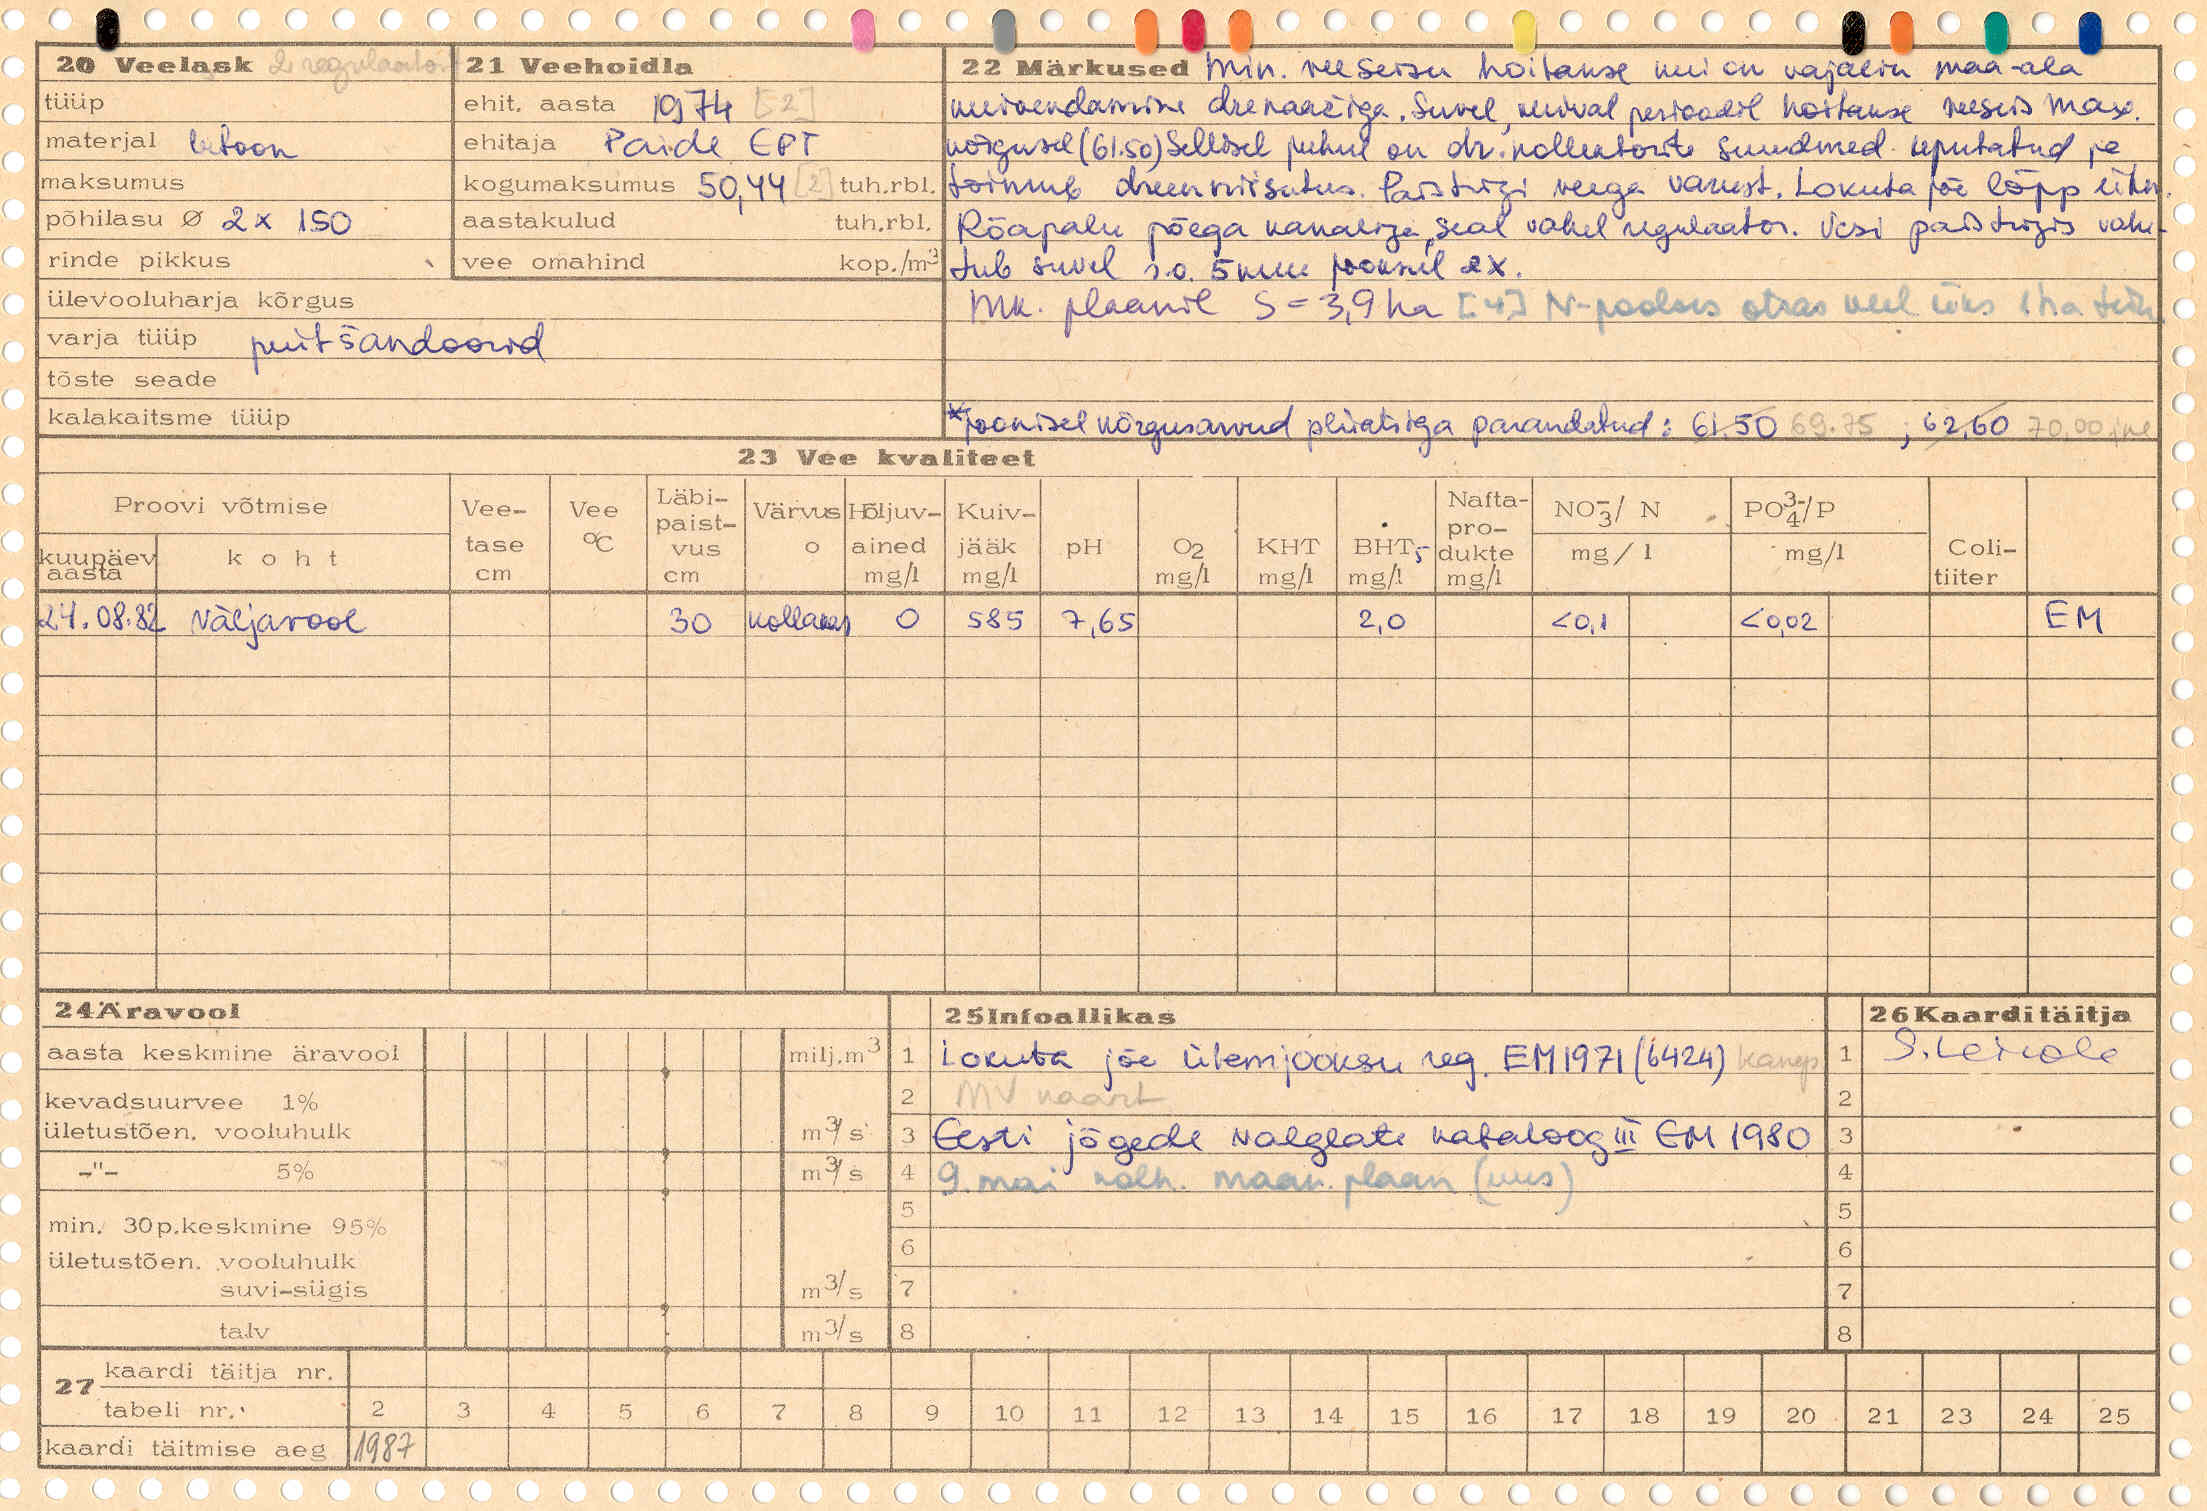 20 Veelask 2 regulaator
tüüp
materjal betoon
maksumus
põhilasu Ø 2 x 150
rinde pikkus
ülevooluharja kõrgus
varja tüüp puitšandoorid
tõste seade
kalakaitsme tüüp
21 Veehoidla
ehit. aasta 1974 [2]
ehitaja Paide EPT
kogumaksumus 50,44 [2] tuh.rbl.
aastakulud tuh.rbl.
vee omahind kop./m3
22 Märkused Min. veeseisu hoitakse kui on vajalik maa-ala
kuivendamine drenaažiga. Suvel, kuival perioodil hoitakse veeseis max.
kõrgusel (61.50) Sellisel juhul on dr. kollektorite suudmed uputatud ja
toimub dreenniisutus. Paistiigi veega varust. Lokuta jõe lõpp ühen.
Rõapalu jõega kanaliga, seal vahel regulaator. Vesi paistiigis vahe-
tub suvel s.o. 5 kuu jooksul 2x.
Mk. plaanil S = 3,9 ha [4] N-pooles otsas veel üks 1 ha tiik
*joonisel kõrgusarvud pliiatsiga parandatud: 61.50 69.75 ; 62,60 70,00 jne
23 Vee kvaliteet
Proovi võtmise
kuupäev aasta
koht
Vee-tase cm
Vee °C
Läbi-paist-vus cm
Värvus o
Hõljuv-ained mg/l
Kuiv-jääk mg/l
pH
O2 mg/l
KHT mg/l
BHT5 mg/l
Nafta-pro-dukte mg/l
NO3-/ N mg/l
PO43-/P mg/l
Coli-tiiter
24.08.82 Väljavool 30 kollakas 0 585 7,65 2,0 <0,1 <0,02 EM
24 Äravool
aasta keskmine äravool milj.m3
kevadsuurvee 1%
ületustõen. vooluhulk m3/s
-"- 5% m3/s
min. 30p.keskmine 95%
ületustõen. vooluhulk
suvi-sügis m3/s
talv m3/s
25 Infoallikas
1 Lokuta jõe ülemjooksu reg. EM 1971 (6424)
2 MV kaart
3 Eesti jõgede valglate kataloog III EM 1980
4 9. mai kolh. maak. plaan (uus)
5
6
7
8
26 Kaardi täitja
1
2
3
4
5
6
7
8
27 kaardi täitja nr.
tabeli nr. 2 3 4 5 6 7 8 9 10 11 12 13 14 15 16 17 18 19 20 21 23 24 25
kaardi täitmise aeg 1987